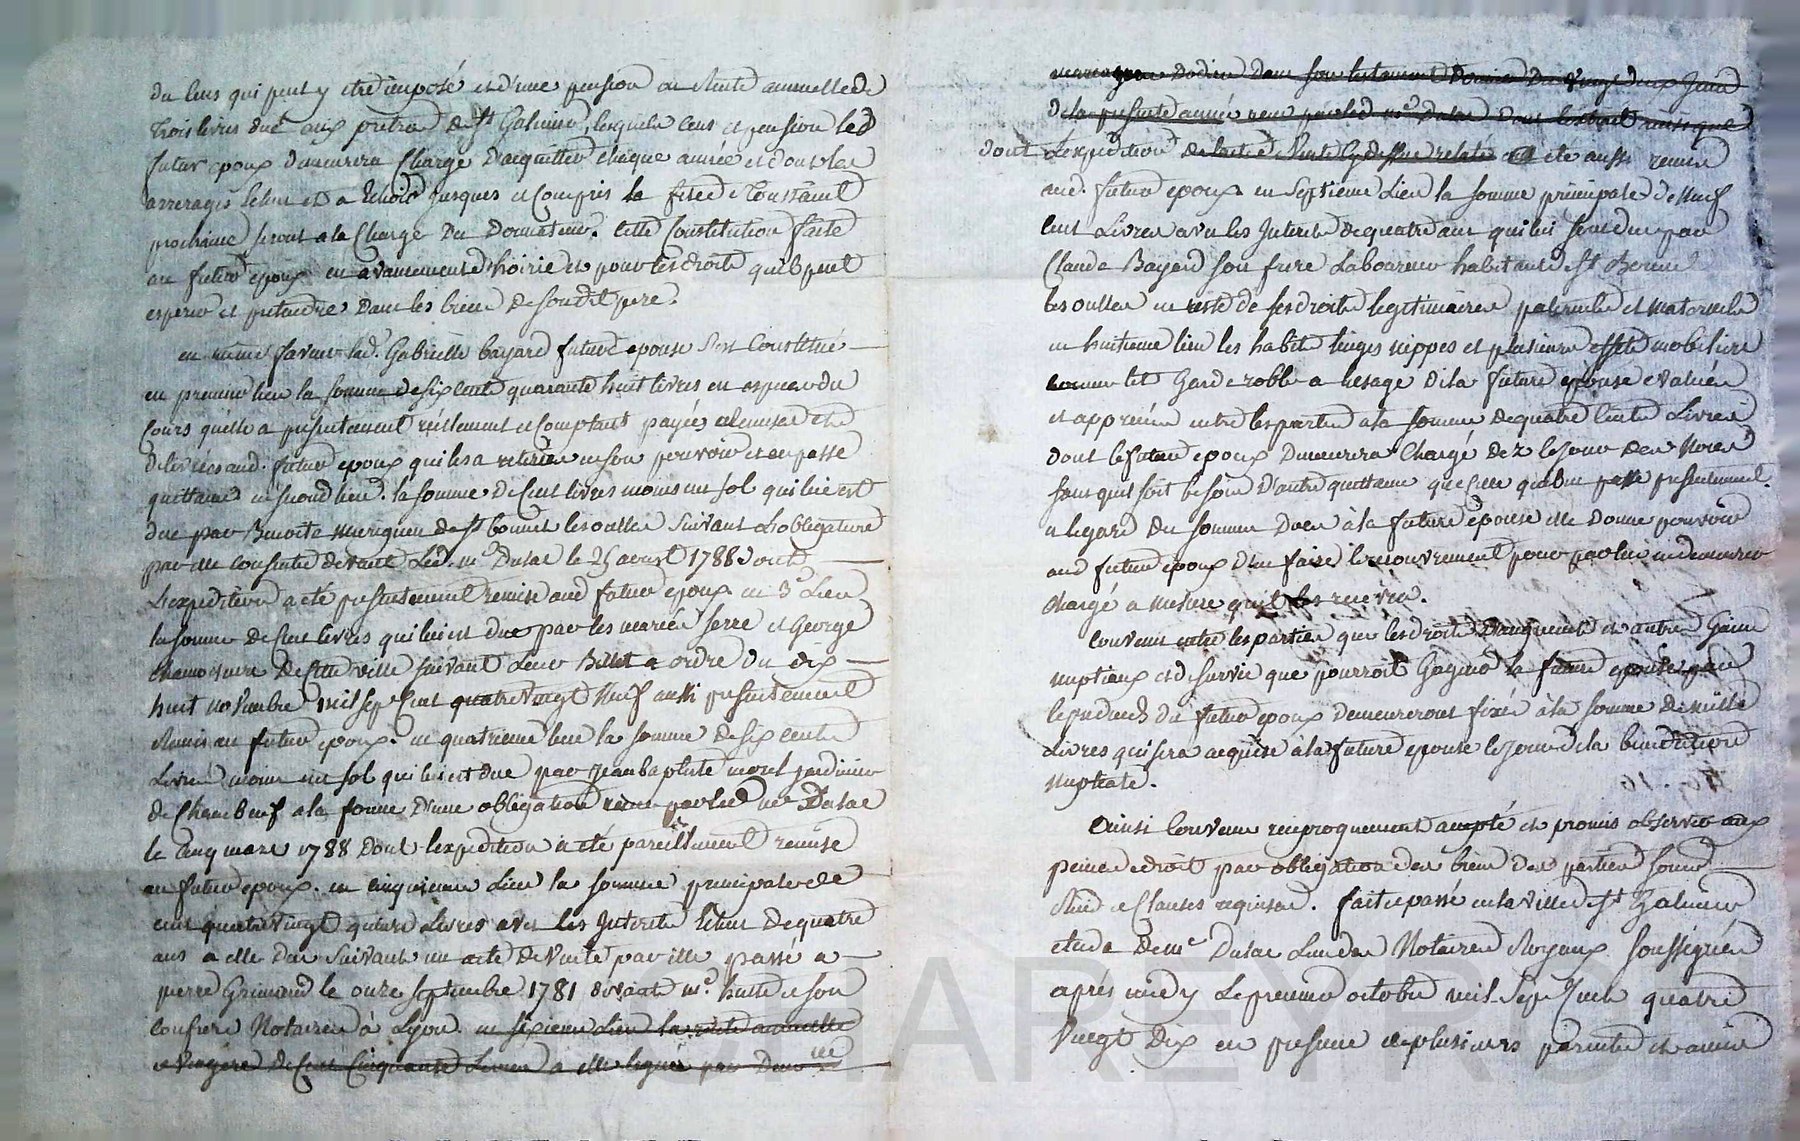 du cens qui peut y etre imposé et d'une pension ou rente annuelle de
trois livres due aux pretres de St Galmier, lesquels cens et pension led
futur epoux demeurera chargé d'acquitter chaque année et dont les
arrerages echus et a echoir jusques et compris la fete de Toussaint
prochaine seront a la charge du Donnateur. cette Constitution faite
au futur epoux en avancement d'hoirie et pour les droits qu'il peut
esperer et pretendre dans les biens de sondit pere.
en meme faveur lad. Gabrielle bayard future epouse s'est Constitué
en premier lieu la somme de six cents quarante huit livres en especes du
Cours qu'elle a presentement réellement et comptant payées remises et
délivrées aud. futur epoux qui les a retirées en son pouvoir et en passe
quittance en second lieu. la somme de Cent livres moins un sol qui lui est
due par Benoite de St bonnet les oulles suivant l'obligation
par elle consentie devant led. me Dusac le 25 avril 1788 dont
l'expedition a été presentement remise aud futur epoux en 3e Lieu
la somme de Cent livres qui lui est due par les mariés serre et George
de cette ville suivant leur Billet a ordre du dix
huit novembre mil sept Cent quatre vingt neuf aussi presentement
remis au futur epoux. en quatrieme lieu la somme de six cents
Livres moins un sol qui lui est due par Jean baptiste mont jardinier
de Chambœuf a la forme d'une obligation reçue par led me Dusac
le Cinq mars 1788 dont l'expedition a été pareillement remise
au futur epoux. en cinquieme Lieu la somme principale de
cent quatre vingt quinze Livres avec les Interets echus de quatre
ans a elle due suivant un acte de vente par elle passé a
pierre Grimand le onze septembre 1781 devant me. et son
confrere Notaires à Lyon. en sixieme Lieu la rente annuelle
et viagere de Cent Cinquante Livres a elle leguée par Demlle
Dodieu dans son testament du vingt deux Juin
de la presente année reçu par led me Dusac
dont L'expedition de l'acte de vente cy dessus relaté a eté aussi remise
aud. futur epoux en septieme Lieu la somme principale de neuf
cent Livres avec les Interets de quatre ans qui lui sont dus par
Claude Bayard son frere Laboureur habitant a St Bonnet
les oulles en reste de ses droits legitimaires paternels et maternels
en huitieme lieu les habits linges nippes et plusieurs effets mobiliers
comme lit Garderobbe a l'usage de la future epouse evalués
et appreciés entre les parties a la somme de quatre Cents Livres
dont le futur epoux demeurera Chargé dez le jour des Noces
sans qu'il soit besoin d'autre quittance que celle qu'il en passe presentement.
a l'egard des sommes dues à la future epouse elle donne pouvoir
aud futur epoux d'en faire le recouvrement pour par lui en demeurer
chargé a mesure qu'il les recevra.
Convenu entre les parties que les droits d'augment et autres Gains
nuptiaux et de survie que pourroit Gagner la future epouse par
le predeces du futur epoux demeureront fixés à la somme de mille
Livres qui sera acquise à la future epouse le jour de la benediction
nuptiale.
Ainsi Convenu reciproquement accepté et promis observer aux
peines de droit par obligation des biens des parties soumis
et Clauses requises. fait et passé en la ville de St Galmier
etude de me Dusac L'un des Notaires Royaux soussignés
après midy Le premier octobre mil sept Cent quatre
vingt dix en presence de plusieurs parents et amis